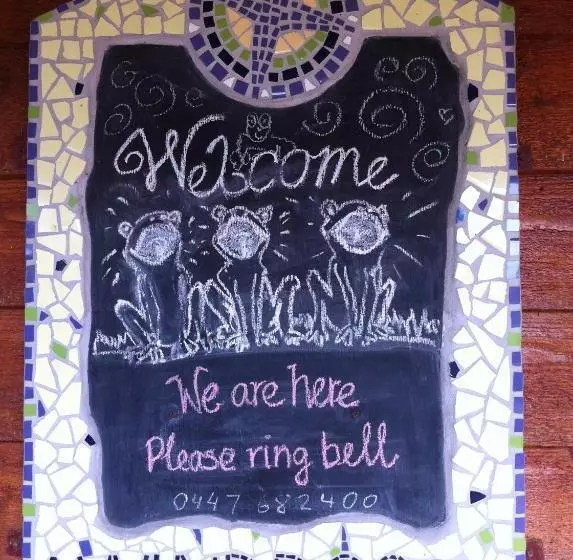 Welcome
We are here
Please ring bell
0447 682400